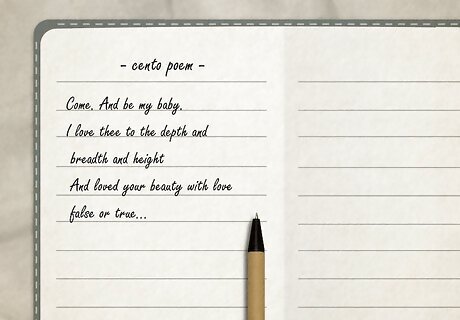 - cento poem -
Come. And be my baby.
I love thee to the depth and
breadth and height
And loved your beauty with love
false or true...